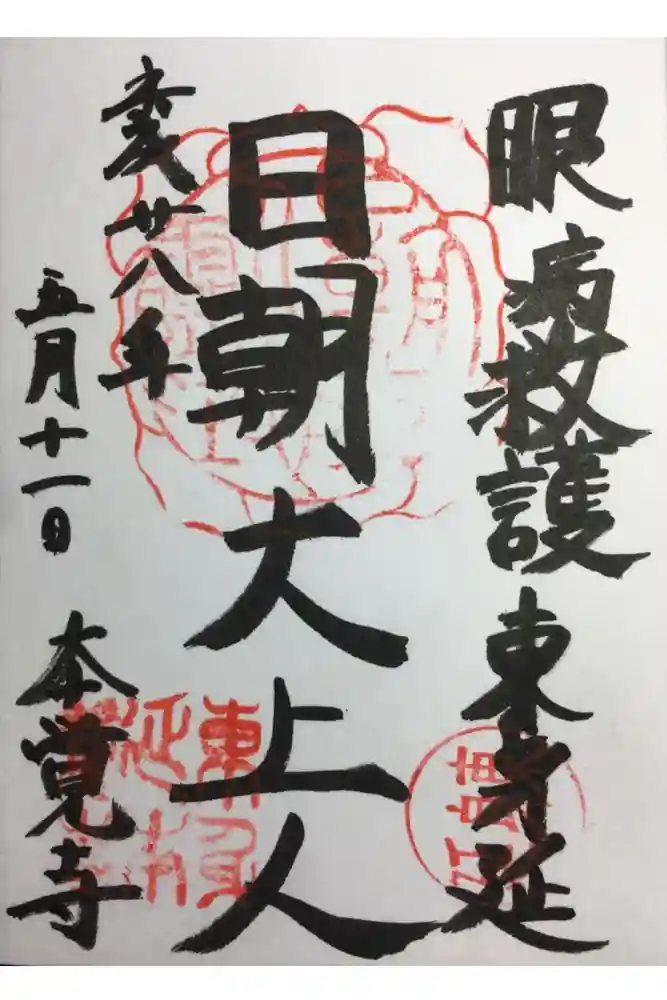 眼病救護 東身延
日朝大上人
平成廿八年
五月十一日 本覚寺